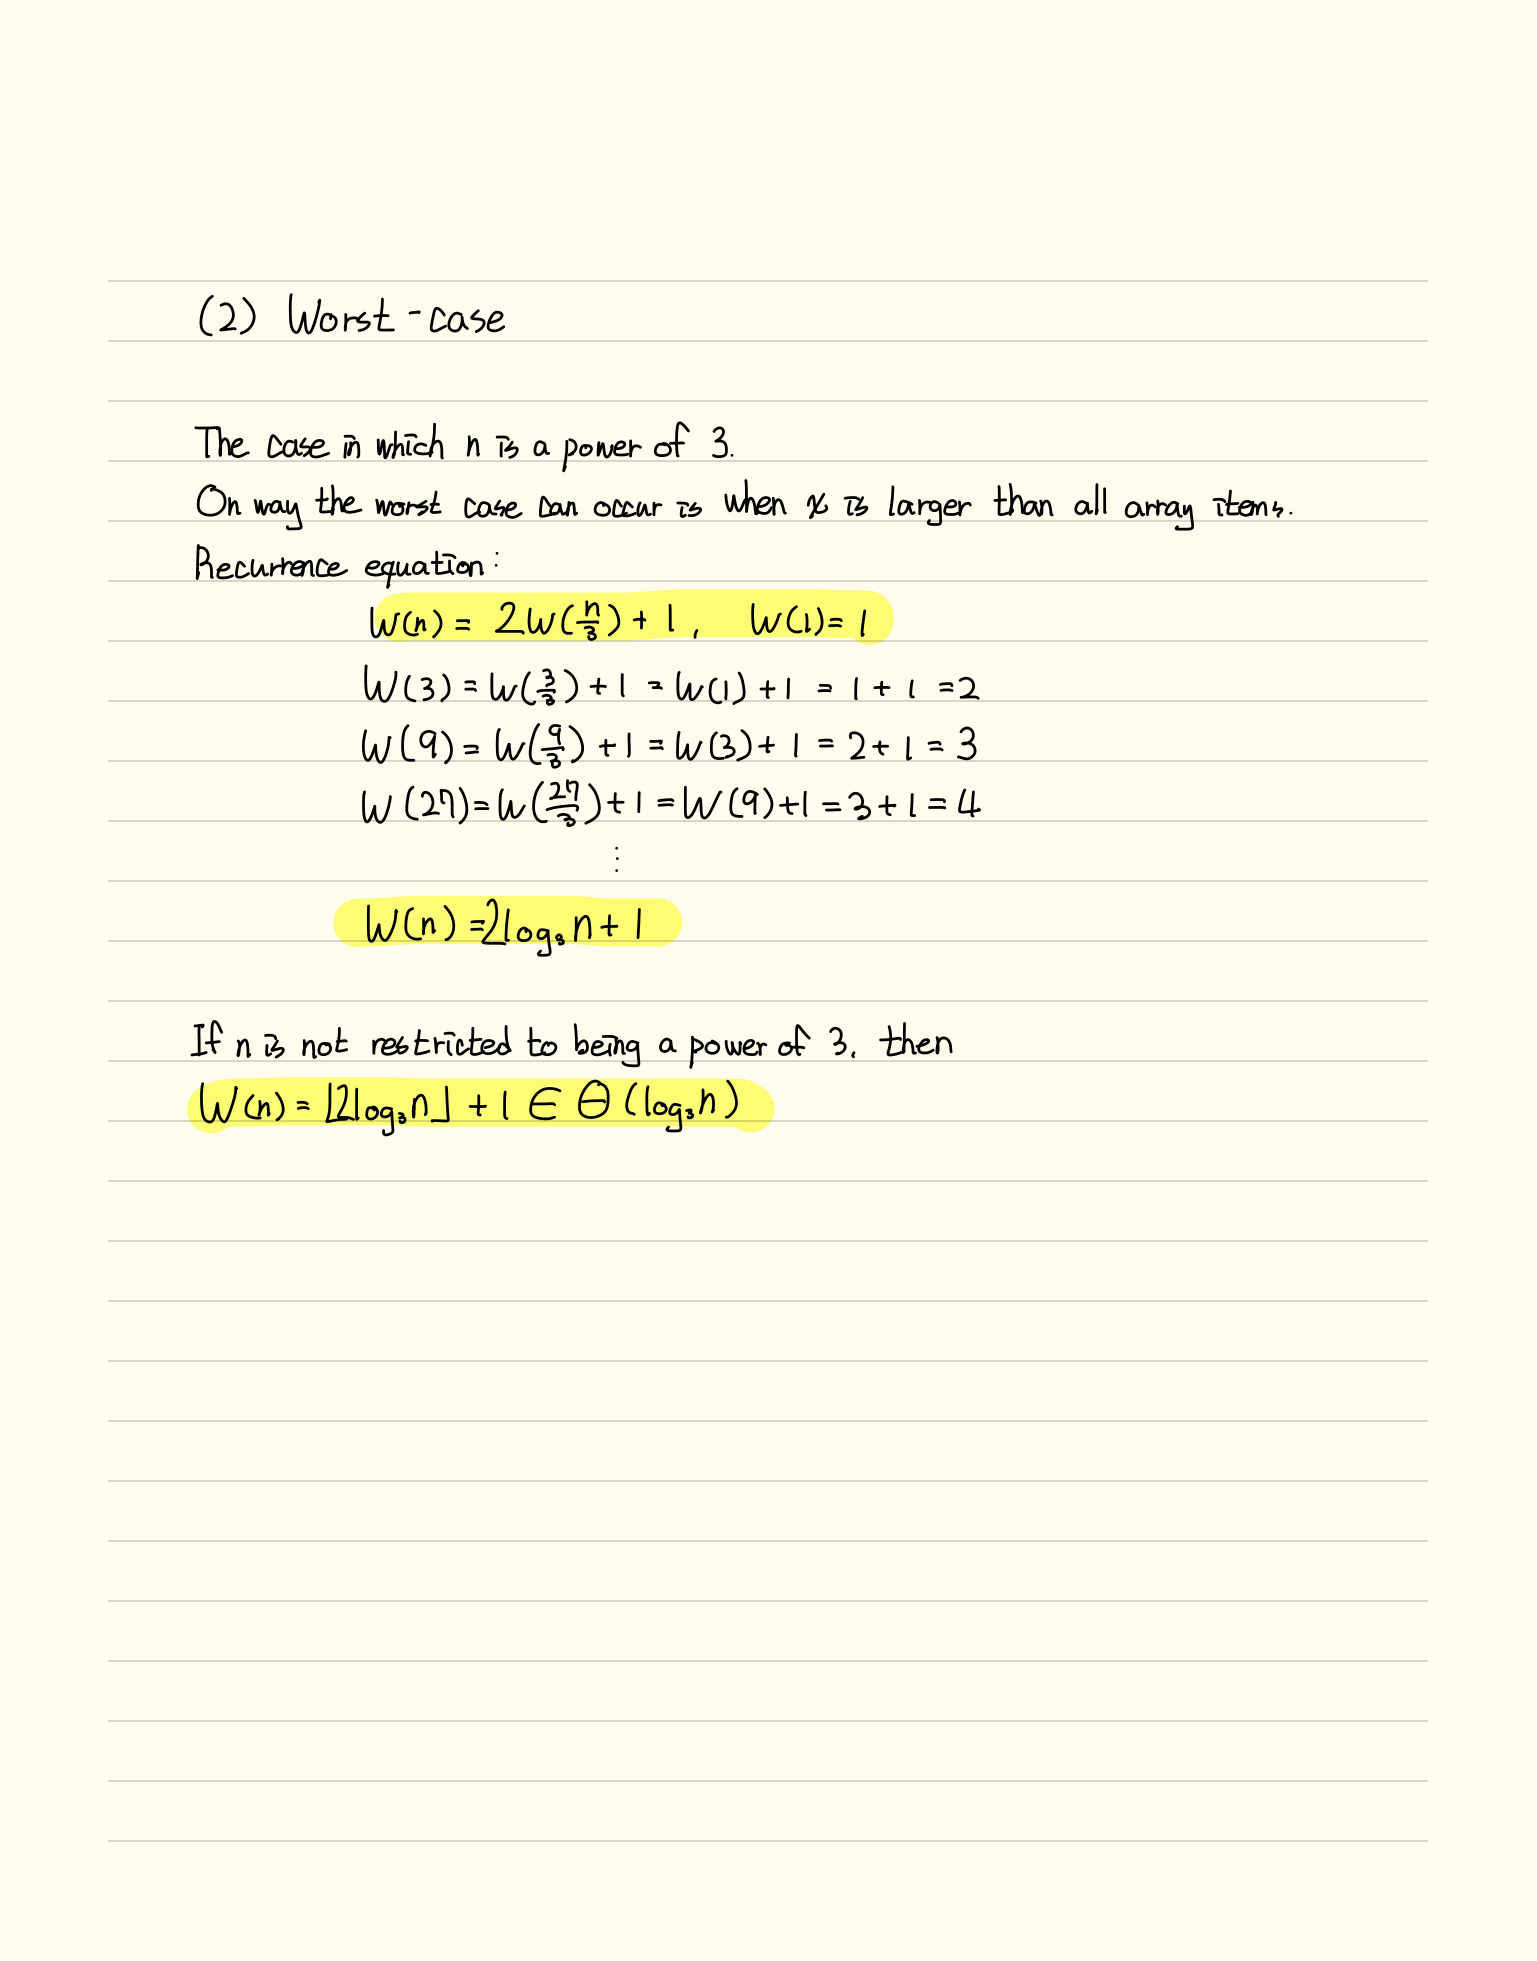 (2) Worst-case
The case in which n is a power of 3.
On way the worst case can occur is when x is larger than all array items.
Recurrence equation:
W(n) = 2W(n/3) + 1, W(1) = 1
W(3) = W(3/3) + 1 = W(1) + 1 = 1 + 1 = 2
W(9) = W(9/3) + 1 = W(3) + 1 = 2 + 1 = 3
W(27) = W(27/3) + 1 = W(9) + 1 = 3 + 1 = 4
⋮
W(n) = 2log₃n + 1
If n is not restricted to being a power of 3, then
W(n) = ⌊2log₃n⌋ + 1 ∈ Θ(log₃n)